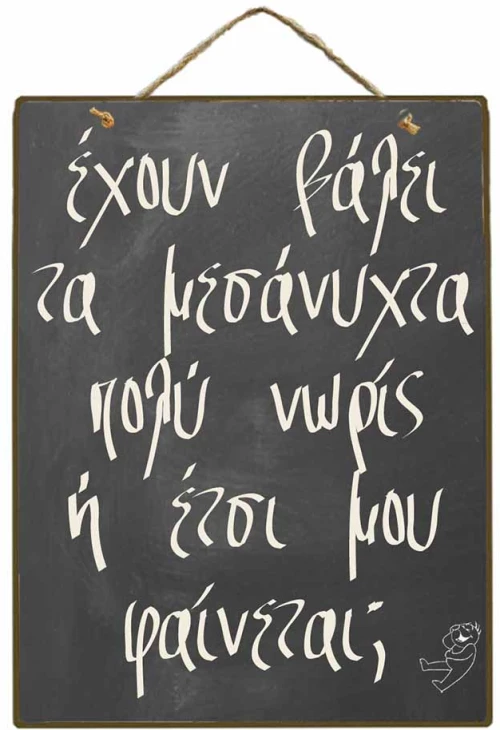 έχουν βάλει
τα μεσάνυχτα
πολύ νωρίς
ή έτσι μου
φαίνεται;